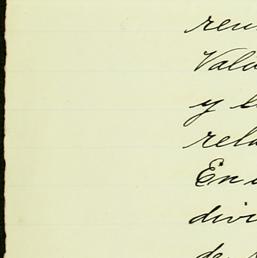 reu
Valo
y l
rela
En
divi
de